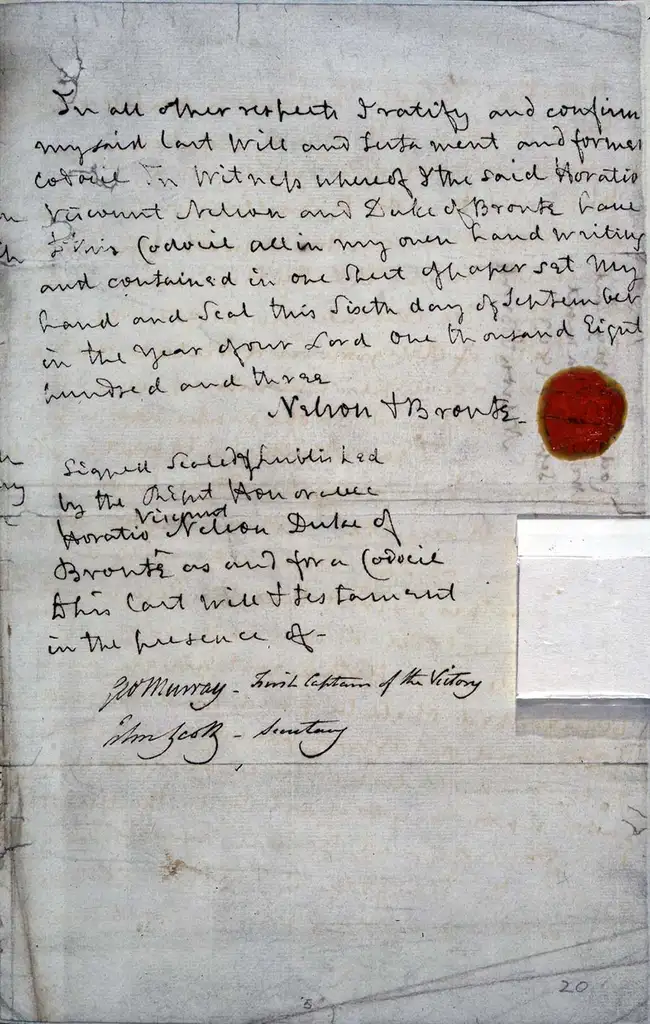 In all other respects I ratify and confirm
my said last Will and Testament and former
Codocil In Witness whereof I the said Horatio
Viscount Nelson and Duke of Bronte have
to this Codocil all in my own hand writing
and contained in one Sheet of paper set my
hand and Seal this Sixth day of September
in the Year of our Lord One thousand Eight
hundred and three
Nelson & Bronte
Signed Sealed & Published
by the Right Honorable
Viscount
Horatio Nelson Duke of
Bronte as and for a Codocil
to his last will & testament
in the presence of -
Geo Murray - First Captain of the Victory
John Scott - Secretary
20
5